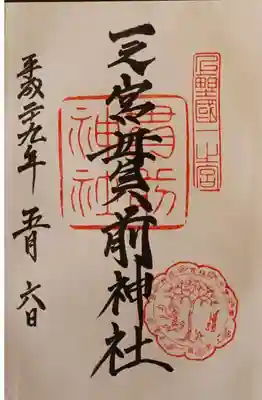 上野國一之宮
一之宮貫前神社
貫前
神社
平成二十九年五月六日